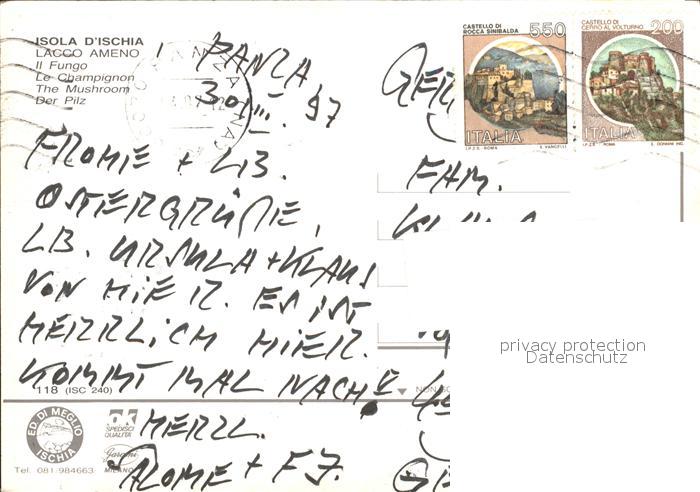 ISOLA D'ISCHIA
LACCO AMENO
Il Fungo
Le Champignon
The Mushroom
Der Pilz
PANZA
30.III.97
FROHE + LB.
OSTERGRÜßE,
LB. URSULA + KLAUS
VON HIER. ES IST
HERRLICH HIER.
KOMMT MAL NACH!
HERZL.
+ FJ.
118 (ISC 240)
ED. DI MEGLIO
ISCHIA
OK
SPEDISCI
QUALITÀ
Garami
MILANO
Tel. 081/984663
CASTELLO DI
ROCCA SINIBALDA
550
ITALIA
I.P.Z.S. - ROMA
E. VANGELLI
CASTELLO DI
CERRO AL VOLTURNO
200
ITALIA
I.P.Z.S. - ROMA
E. DONNINI INC.
FAM.
privacy protection
Datenschutz